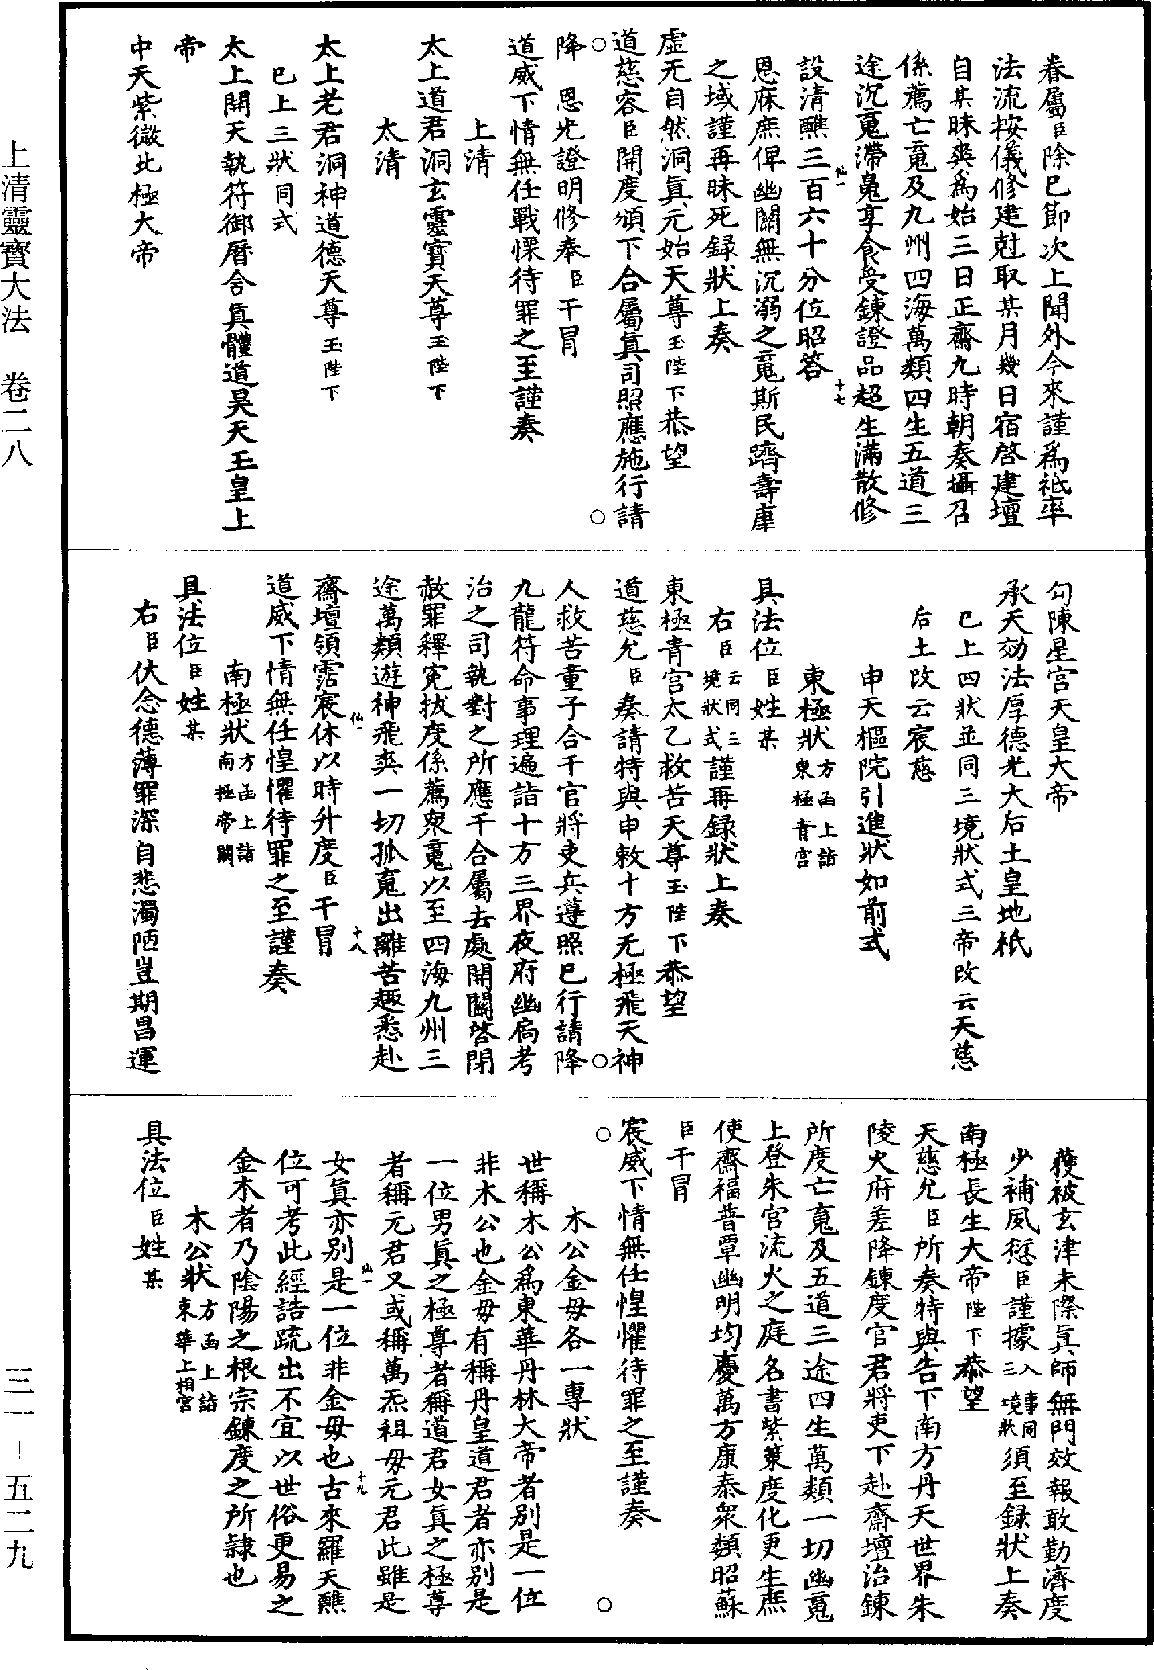 上清靈寶大法　卷二八
三一－五二九
眷屬臣除已節次上聞外今來謹爲祗率
法流按儀修建尅取某月幾日宿啓建壇
自某昧爽爲始三日正齋九時朝奏攝召
係薦亡䰟及九州四海萬類四生五道三
途沉䰟滯魄享食受鍊證品超生滿散修
設清醮三百六十分位昭答
仙一
十七
恩庥庶俾幽關無沉溺之䰟斯民躋壽庫
之域謹再昧死録狀上奏
虛无自然洞真元始天尊玉陛下恭望
道慈容臣開度頒下合屬真司照應施行請
降　恩光證明修奉臣干冒
道威下情無任戰慄待罪之至謹奏
上清
太上道君洞玄靈寶天尊玉陛下
太清
太上老君洞神道德天尊玉陛下
已上三狀同式
太上開天執符御曆含真體道昊天玉皇上
帝
中天紫微北極大帝
勾陳星宮天皇大帝
承天效法厚德光大后土皇地祇
已上四狀並同三境狀式三帝改云天慈
后土改云宸慈
申天樞院引進狀如前式
東極狀方函上詣東極青宮
具法位臣姓某
右臣云同三境狀式謹再録狀上奏
東極青宮太乙救苦天尊玉陛下恭望
道慈允臣奏請特與申敕十方无極飛天神
人救苦童子合千官將吏兵遵照已行請降
九龍符命事理遍詣十方三界夜府幽扃考
治之司執對之所應千合屬去處開關啓閉
赦罪釋寃拔度係薦衆䰟以至四海九州三
途萬類遊神飛爽一切孤䰟出離苦趣悉赴
仙一
十八
齋壇領霑宸休以時升度臣干冒
道威下情無任惶懼待罪之至謹奏
南極狀方函上詣南極帝闕
具法位臣姓某
右臣伏念德薄罪深自悲濁陋豈期昌運
獲被玄津未際真師無門效報敢勤濟度
少補風愆臣謹據入事同三境狀須至録狀上奏
南極長生大帝陛下恭望
天慈允臣所奏特與告下南方丹天世界朱
陵火府差降鍊度官君將吏下赴齋壇治鍊
所度亡䰟及五道三途四生萬類一切幽䰟
上登朱宮流火之庭名書紫策度化更生庶
使齋福普覃幽明均慶萬方康泰衆類昭蘇
臣干冒
宸威下情無任惶懼待罪之至謹奏
木公金母各一專狀
世稱木公爲東華丹林大帝者別是一位
非木公也金母有稱丹皇道君者亦別是
一位男真之極尊者稱道君女真之極尊
者稱元君又或稱萬炁祖母元君此雖是
仙一
十九
女真亦別是一位非金母也古來羅天醮
位可考此經誥疏出不宜以世俗更易之
金木者乃陰陽之根宗鍊度之所隷也
木公狀方函上詣東華上相宮
具法位臣姓某